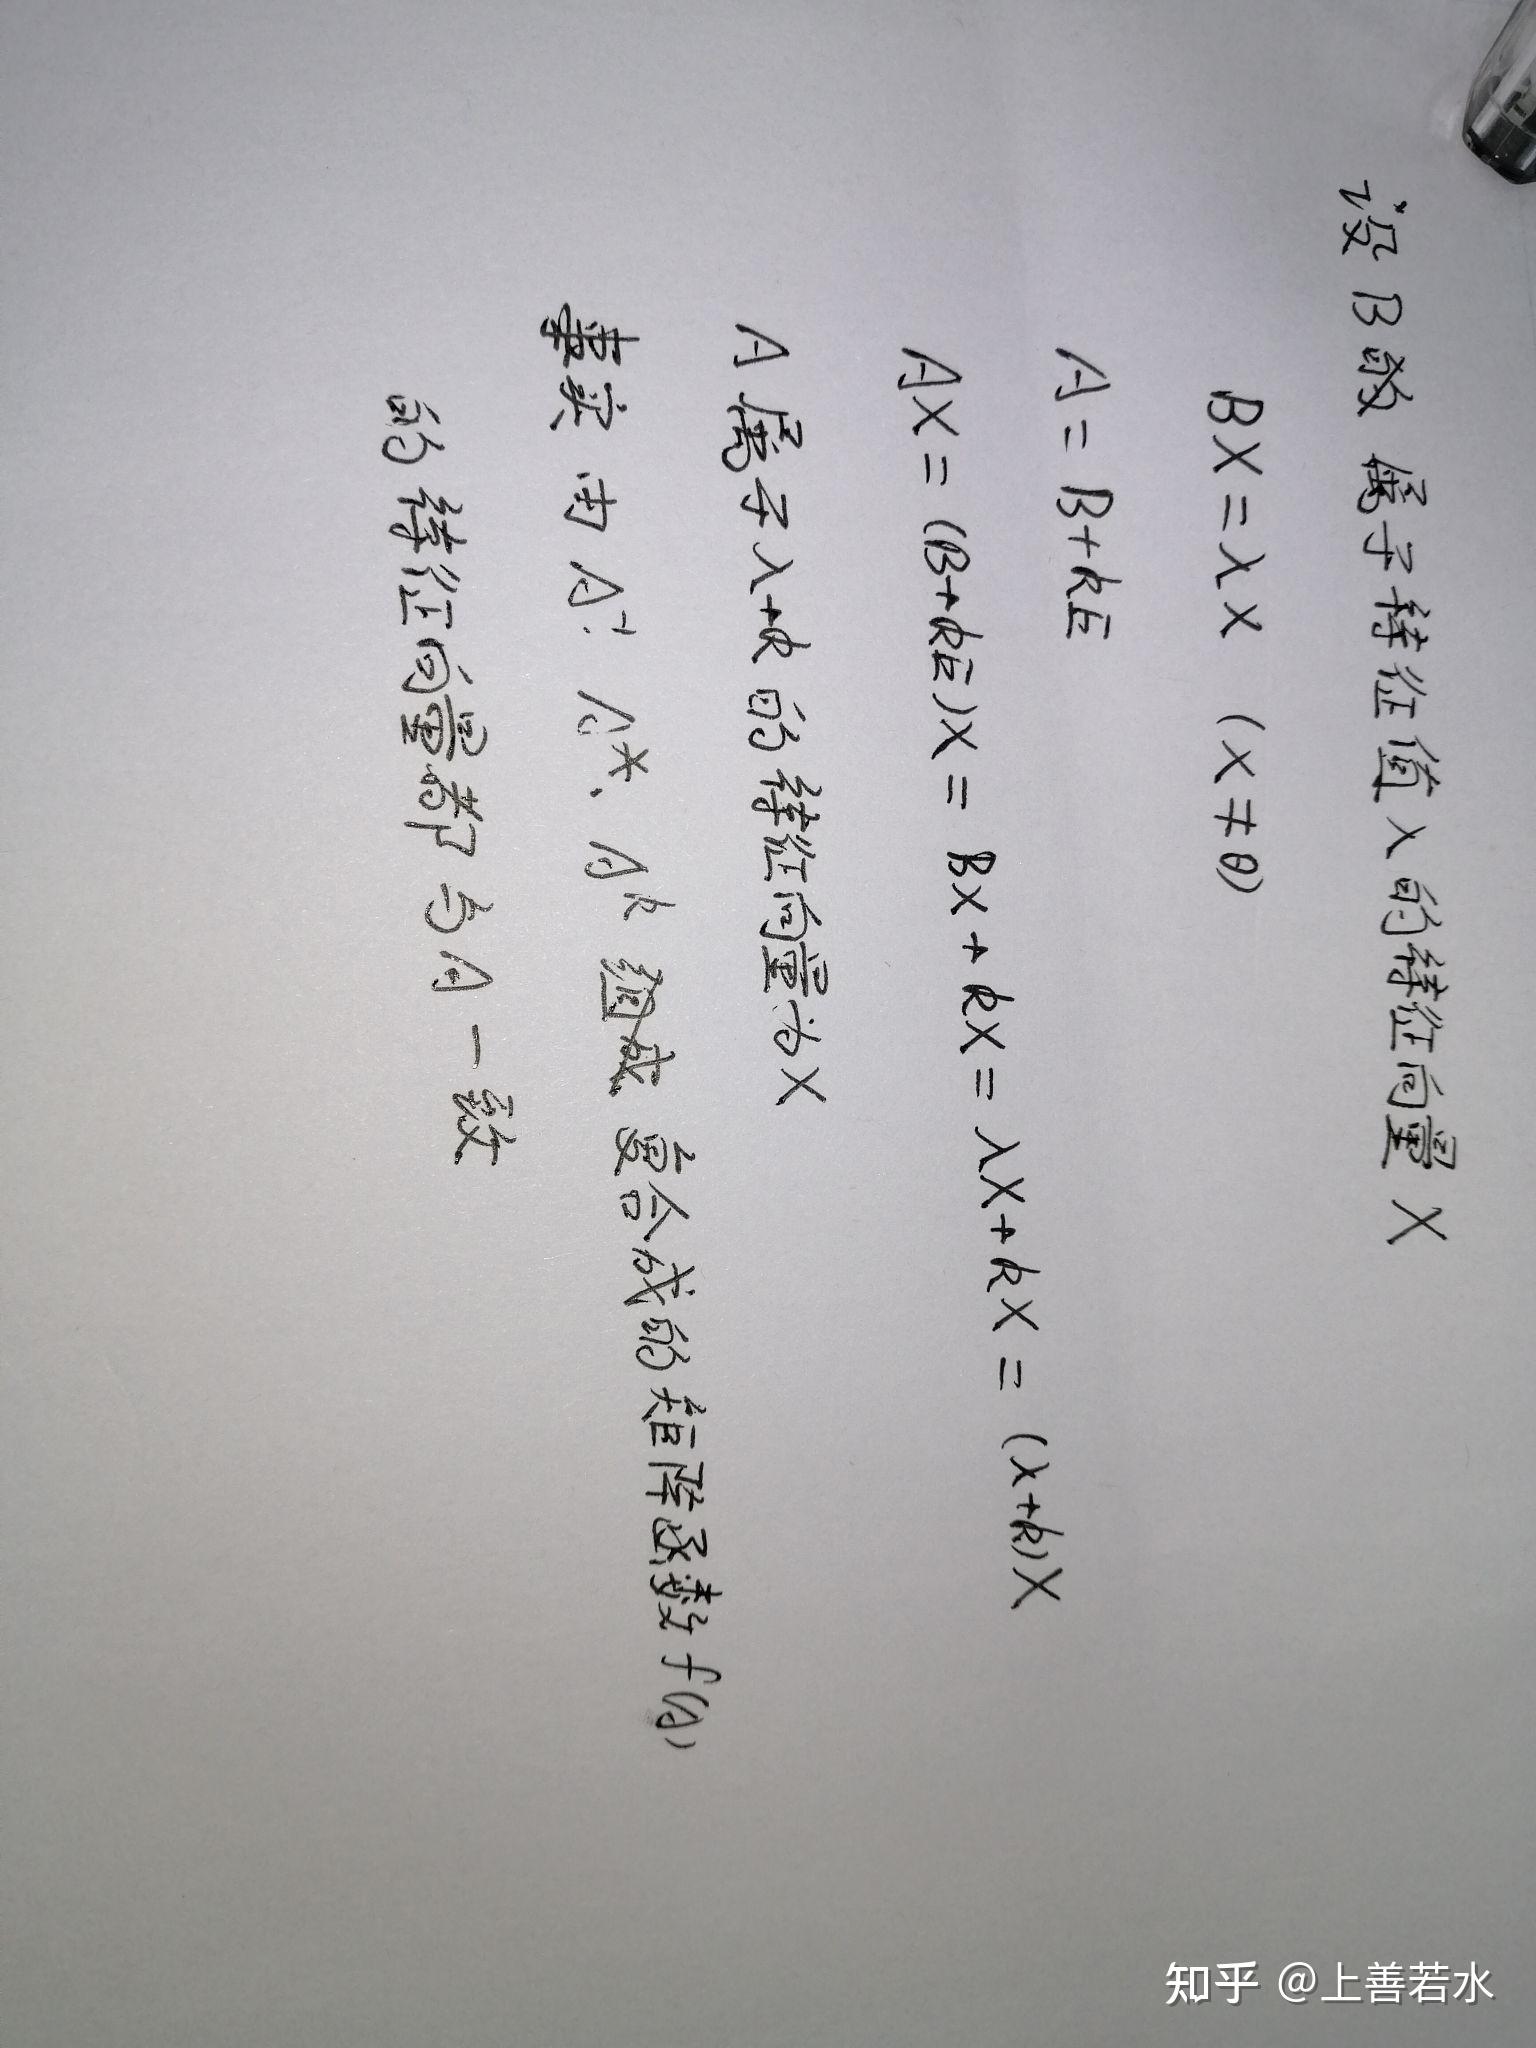 设B的属于特征值λ的特征向量X
BX=λX (X≠θ)
A=B+kE
AX=(B+kE)X=BX+kX=λX+kX=(λ+k)X
A属于λ+k的特征向量为X
事实由A⁻¹、A*、Aᵏ组成复合成的矩阵函数f(A)
的特征向量都与A一致
知乎 @上善若水